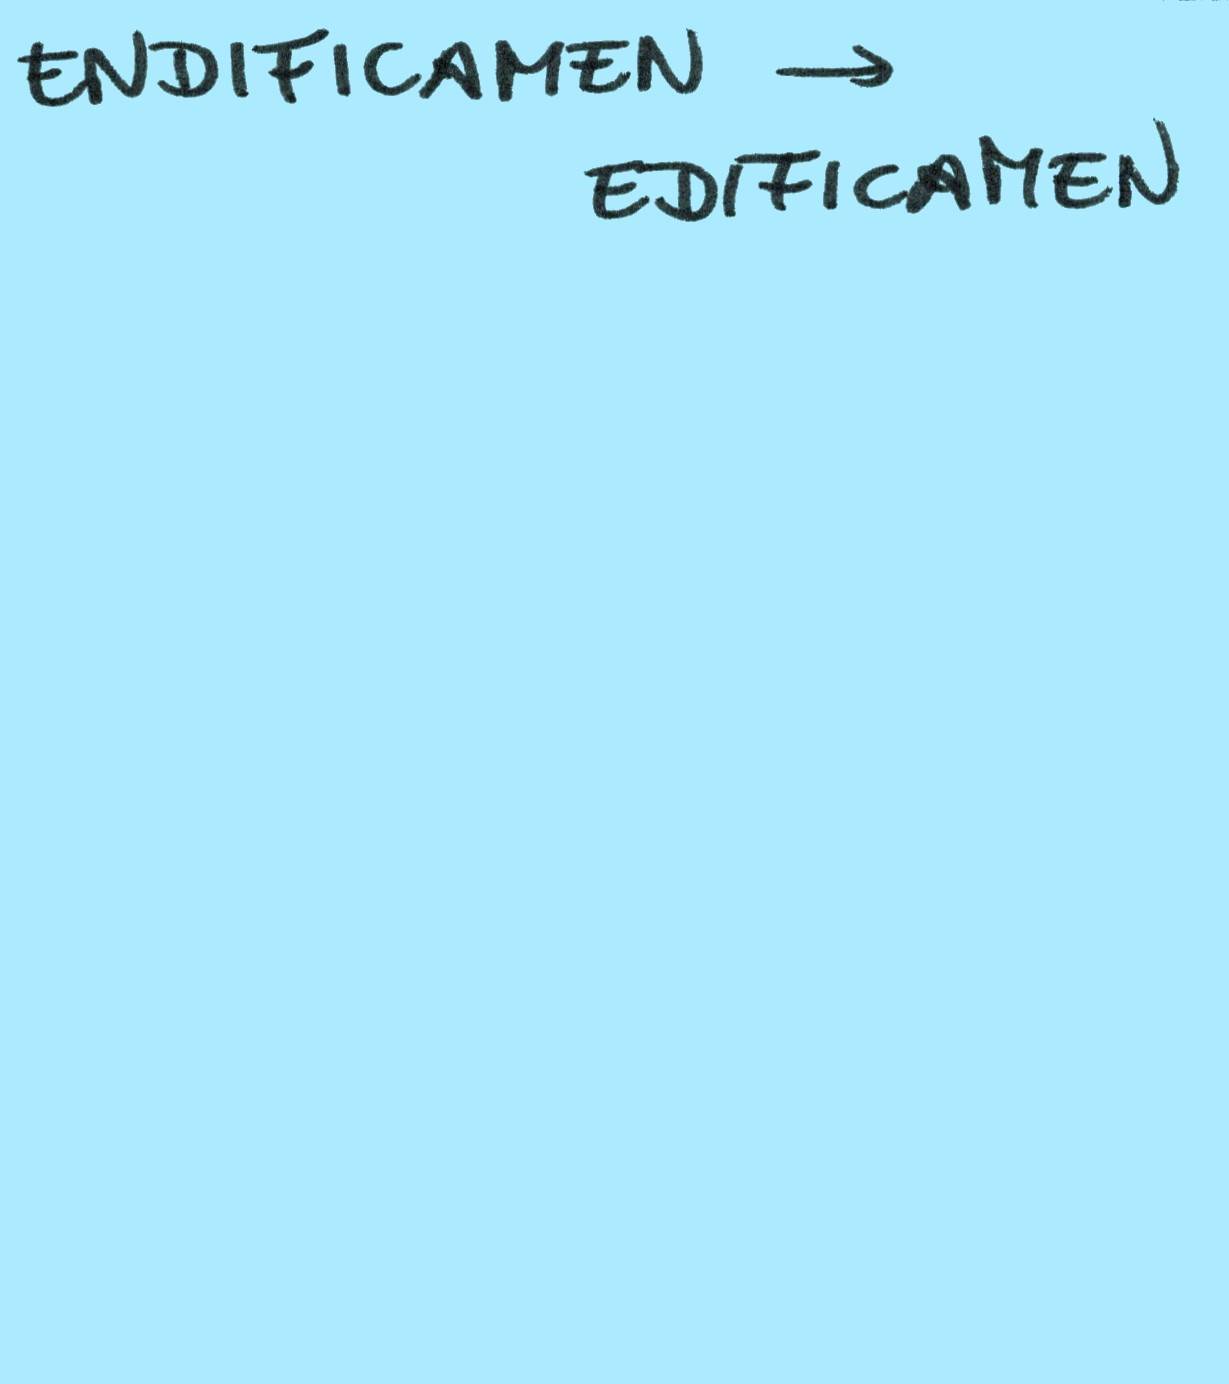 ENDIFICAMEN →
EDIFICAMEN